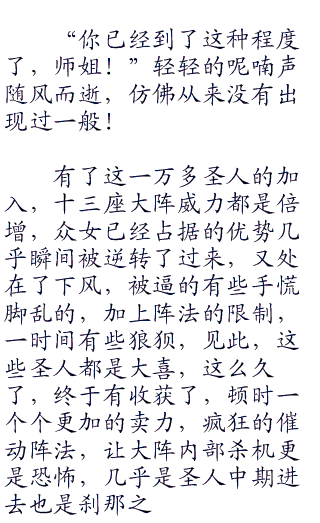 “你已经到了这种程度
了，师姐！”轻轻的呢喃声
随风而逝，仿佛从来没有出
现过一般！
有了这一万多圣人的加
入，十三座大阵威力都是倍
增，众女已经占据的优势几
乎瞬间被逆转了过来，又处
在了下风，被逼的有些手慌
脚乱的，加上阵法的限制，
一时间有些狼狈，见此，这
些圣人都是大喜，这么久
了，终于有收获了，顿时一
个个更加的卖力，疯狂的催
动阵法，让大阵内部杀机更
是恐怖，几乎是圣人中期进
去也是刹那之